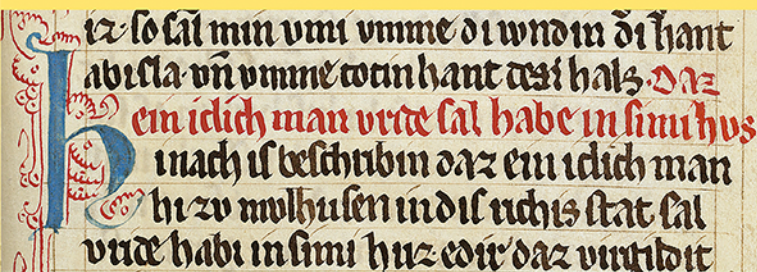 iz· so sal min vmi vmme di wndin di hant
abisla· vn̄ vmme totin hant hals· Daz
ein iclich man vride sal habe in simi hus
hinach is beschribin daz ein iclich man
hi zv mvlhusen in dis richis stat sal
vride habi in simi huz edir daz virgildit